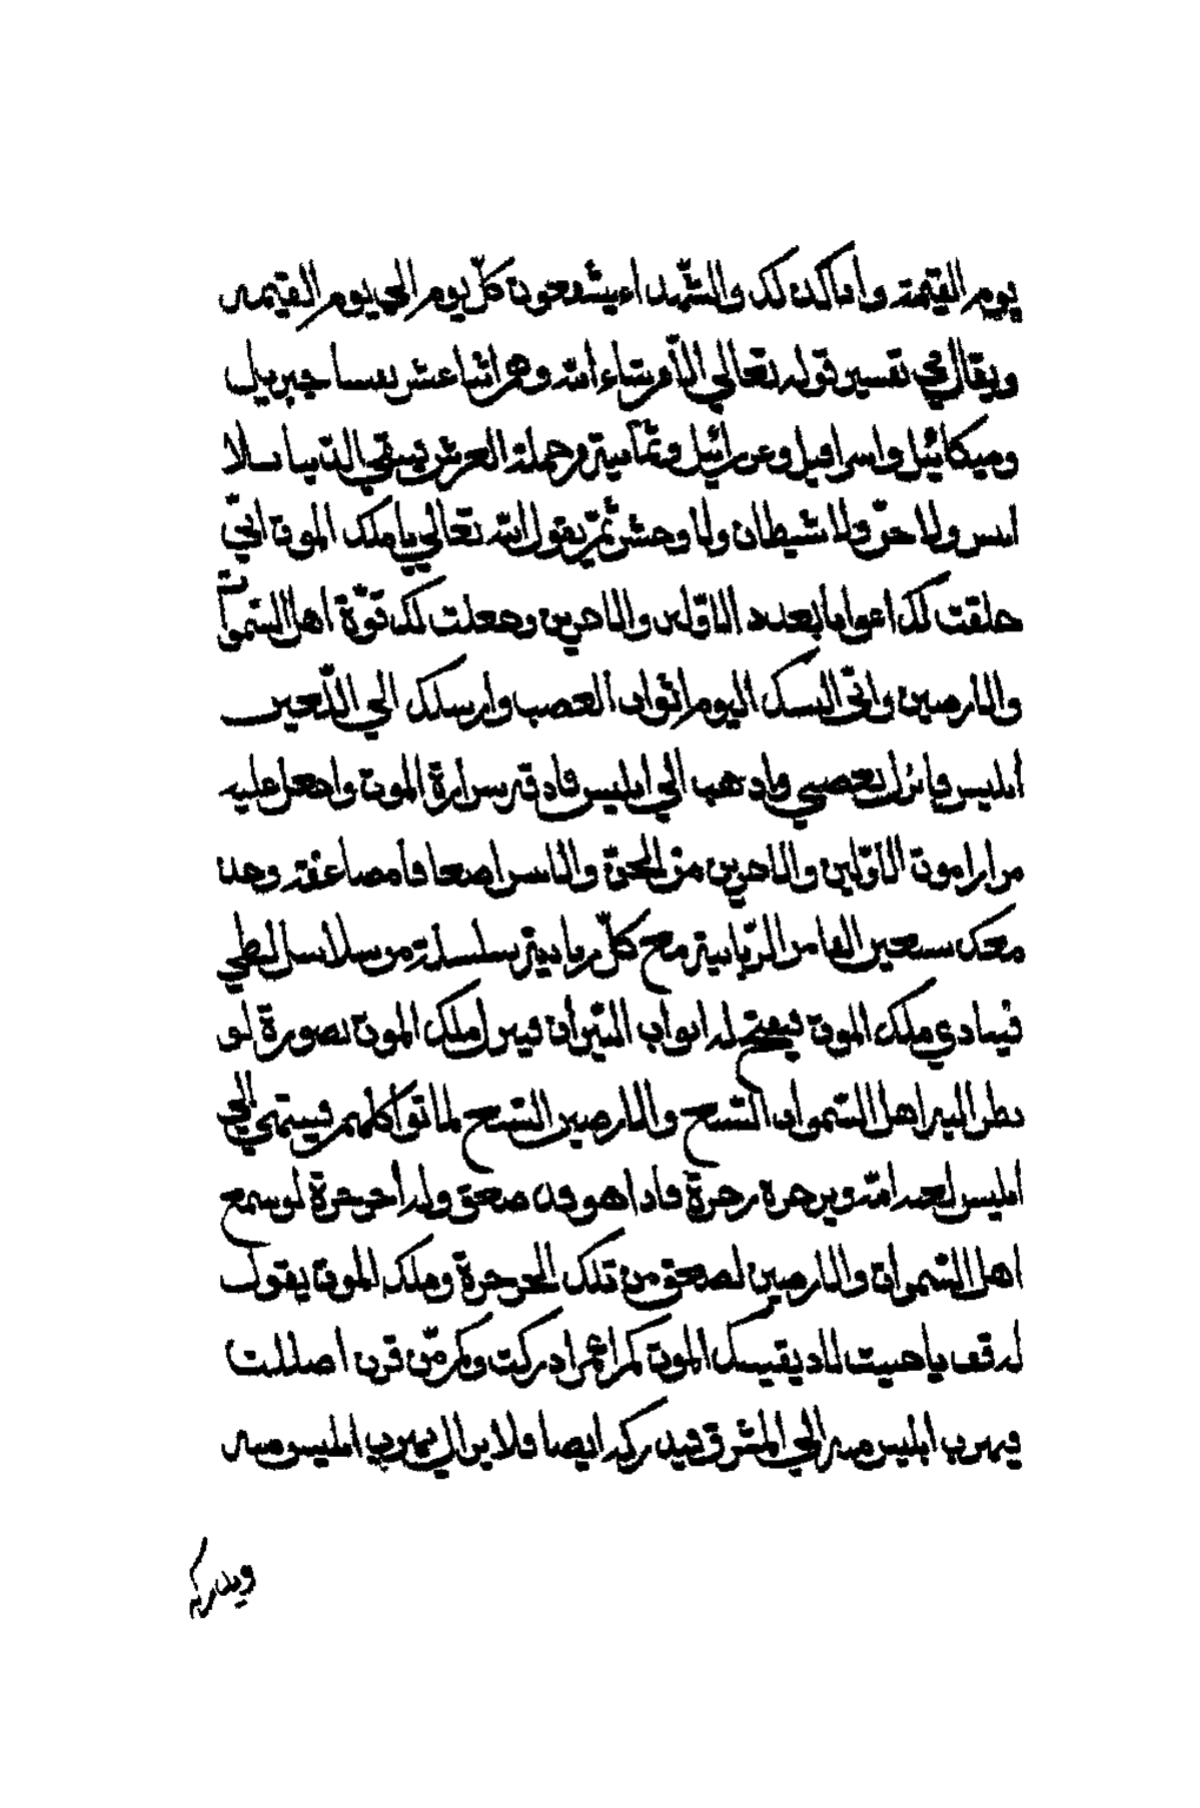 يوم القيمة وانا كذلك والشّهداء يشفعون كلّ يوم الي يوم القيمة
ويقال في تفسير قوله تعالي الّا من شاء الله وهم اثنا عشر نفسا جبريل
وميكائيل واسرافيل وعزرائيل وثمانية من حملة العرش فبقي الدّنيا بلا
انس ولا جنّ ولا شيطان ولا وحش ثمّ يقول الله تعالي يا ملك الموت انّي
خلقت لك اعوانا بعدد الاوّلين والاخرين وجعلت لك قوّة اهل السّموات
والارضين وانّي البسك اليوم اثواب الغضب وارسلك الي اللّعين
ابليس فانزل بغضبي واذهب الي ابليس فاذقه مرارة الموت واجعل عليه
مرارا موت الاوّلين والاخرين من الجنّ والانس اضعافا مضاعفة وخذ
معك سبعين الفا من الزّبانية مع كلّ زبانية سلسلة من سلاسل لظي
فينادي ملك الموت فيفتح له ابواب النّيران فينزل ملك الموت بصورة لو
نظر اليه اهل السّموات السّبع والارضين السّبع لماتوا كلّهم فينتهي الي
ابليس لعنه الله ويزجره زجرة فاذا هو قد صعق وله خرخرة لو سمع
اهل السّموات والارضين لصعق من تلك الخرخرة وملك الموت يقول
له قف يا خبيث لاذيقنّك الموت كم عمر ادركت وكم من قرن اضللت
فيهرب ابليس منه الي المشرق فيدركه ايضا فلا يزال يهرب ابليس منه
ويدركه